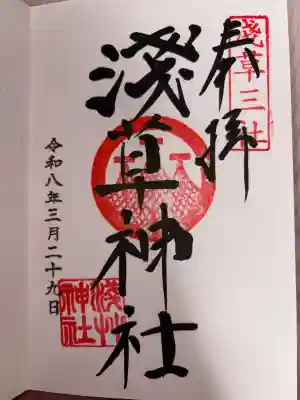 淺草三社
奉拝
淺草神社
淺草神社
令和八年三月二十九日